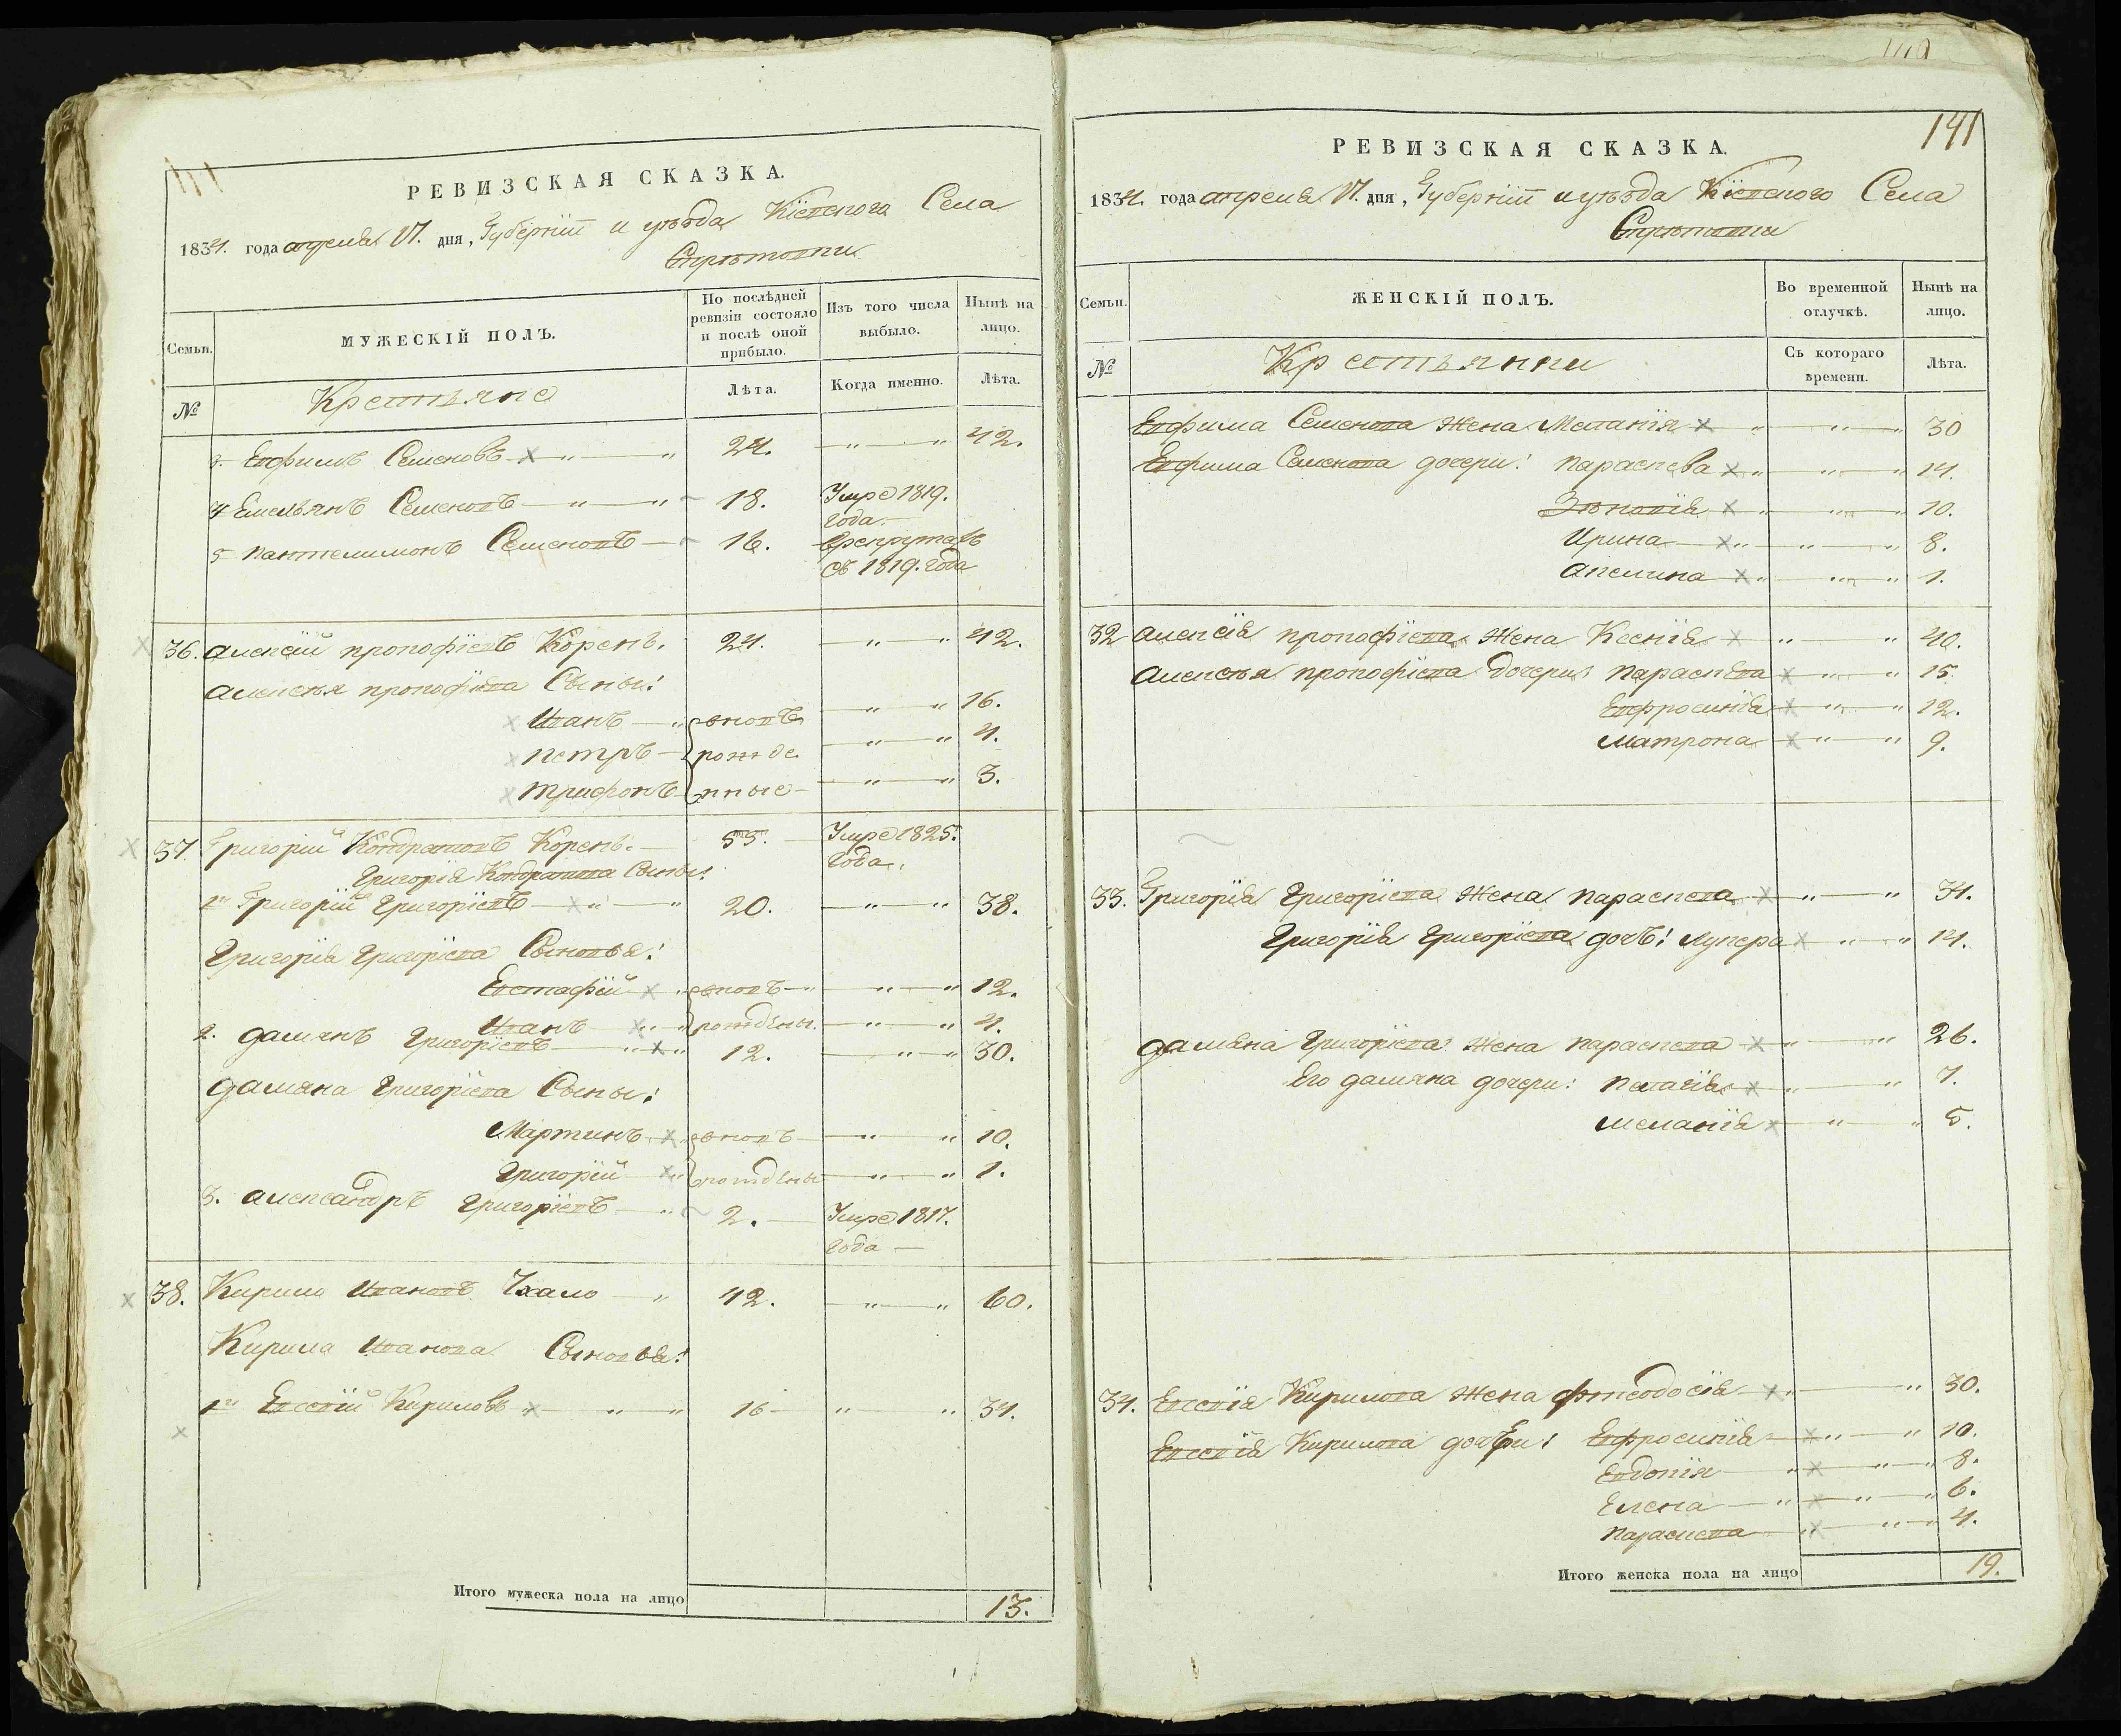 111
РЕВИЗСКАЯ СКАЗКА.
1834. года апреля 17. дня, Губернїи и уѣзда Кіевского Села
Стрѣтовки
Семьи.
МУЖЕСКІЙ ПОЛЪ.
По послѣдней ревизіи состояло и послѣ оной прибыло.
Изъ того числа выбыло.
Нынѣ на лицо.
№
Крестьяне
Лѣта.
Когда именно.
Лѣта.
3. Евфимъ Семеновъ 24. 42.
4 Емельянъ Семеновъ 18. Умре 1819. года
5 Пантелимонъ Семеновъ 16. Врекрутахъ съ 1819. года
36. Алексїй Прокофїевъ Корень. 24. 42.
Алексѣя Прокофїева Сыны:
Иванъ вновь 16.
Петръ рожде 4.
Трифонъ нные 3.
37. Григорїй Кондратовъ Корень. 53. Умре 1825. года.
Григорїя Кондратова Сыны:
1й Григорїй Григорїевъ 20. 38.
Григорїя Григорїева Сыновья:
Евстафїй вновъ 12.
Иванъ рождены. 4.
2. Дамянъ Григорїевъ 12. 30.
Дамяна Григорїева Сыны:
Мартинъ вновъ 10.
Григорїй рождены 1.
3. Александръ Григорїевъ 2. Умре 1817. года
38. Кирило Ивановъ Чхало 42. 60.
Кирила Иванова Сыновья:
1й Евсевїй Кириловъ 16 34.
Итого мужеска пола на лицо 13.
141
РЕВИЗСКАЯ СКАЗКА.
1834. года апреля 17. дня, Губернїи и уѣзда Кїевского Села
Стрѣтовки
Семьи.
ЖЕНСКІЙ ПОЛЪ.
Во временной отлучкѣ.
Нынѣ на лицо.
№
Крестьянки
Съ котораго времени.
Лѣта.
Евфима Семенова Жена Меланїя 30
Евфима Семенова дочери: Параскева 14.
Зѣновїя 10.
Ирина 8.
Акелина 1.
32 Алексїя Прокофїева Жена Ксенїя 40.
Алексѣя Прокофїева Дочери: Параскева 15.
Евфросинїя 12.
Матрона 9.
33. Григорїя Григорїева Жена Параскева 34.
Григорїя Григорїева дочъ: Лукера 14.
Дамяна Григорїева Жена Параскева 26.
Его Дамяна дочери: Пелагїя 7.
Меланїя 5.
34. Евсевїя Кирилова Жена Фтеодосїя 30.
Евсевїя Кирилова дочери: Евфросинїя 10.
Евдокїя 8.
Елена 6.
Параскева 4.
Итого женска пола на лицо 19.